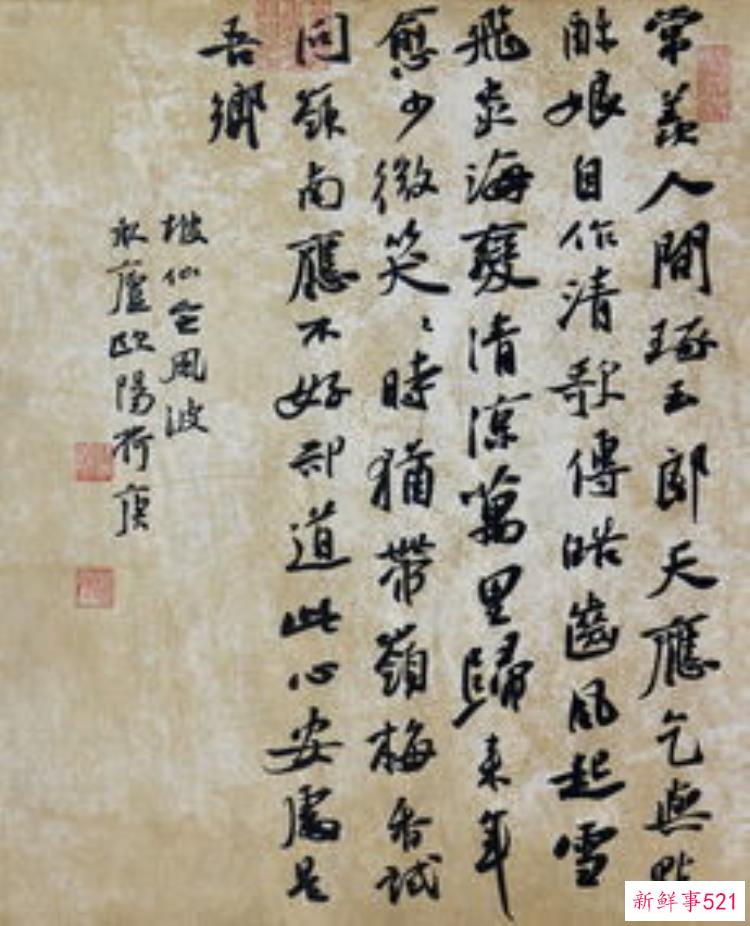 常羨人間琢玉郎天應乞與點
酥娘自作清歌傳皓齒風起雪
飛炎海變清涼萬里歸來年
愈少微笑〻時猶帶嶺梅香試
問嶺南應不好却道此心安處是
吾鄉
坡仙定風波
永廬歐陽荷庚
新鲜事521